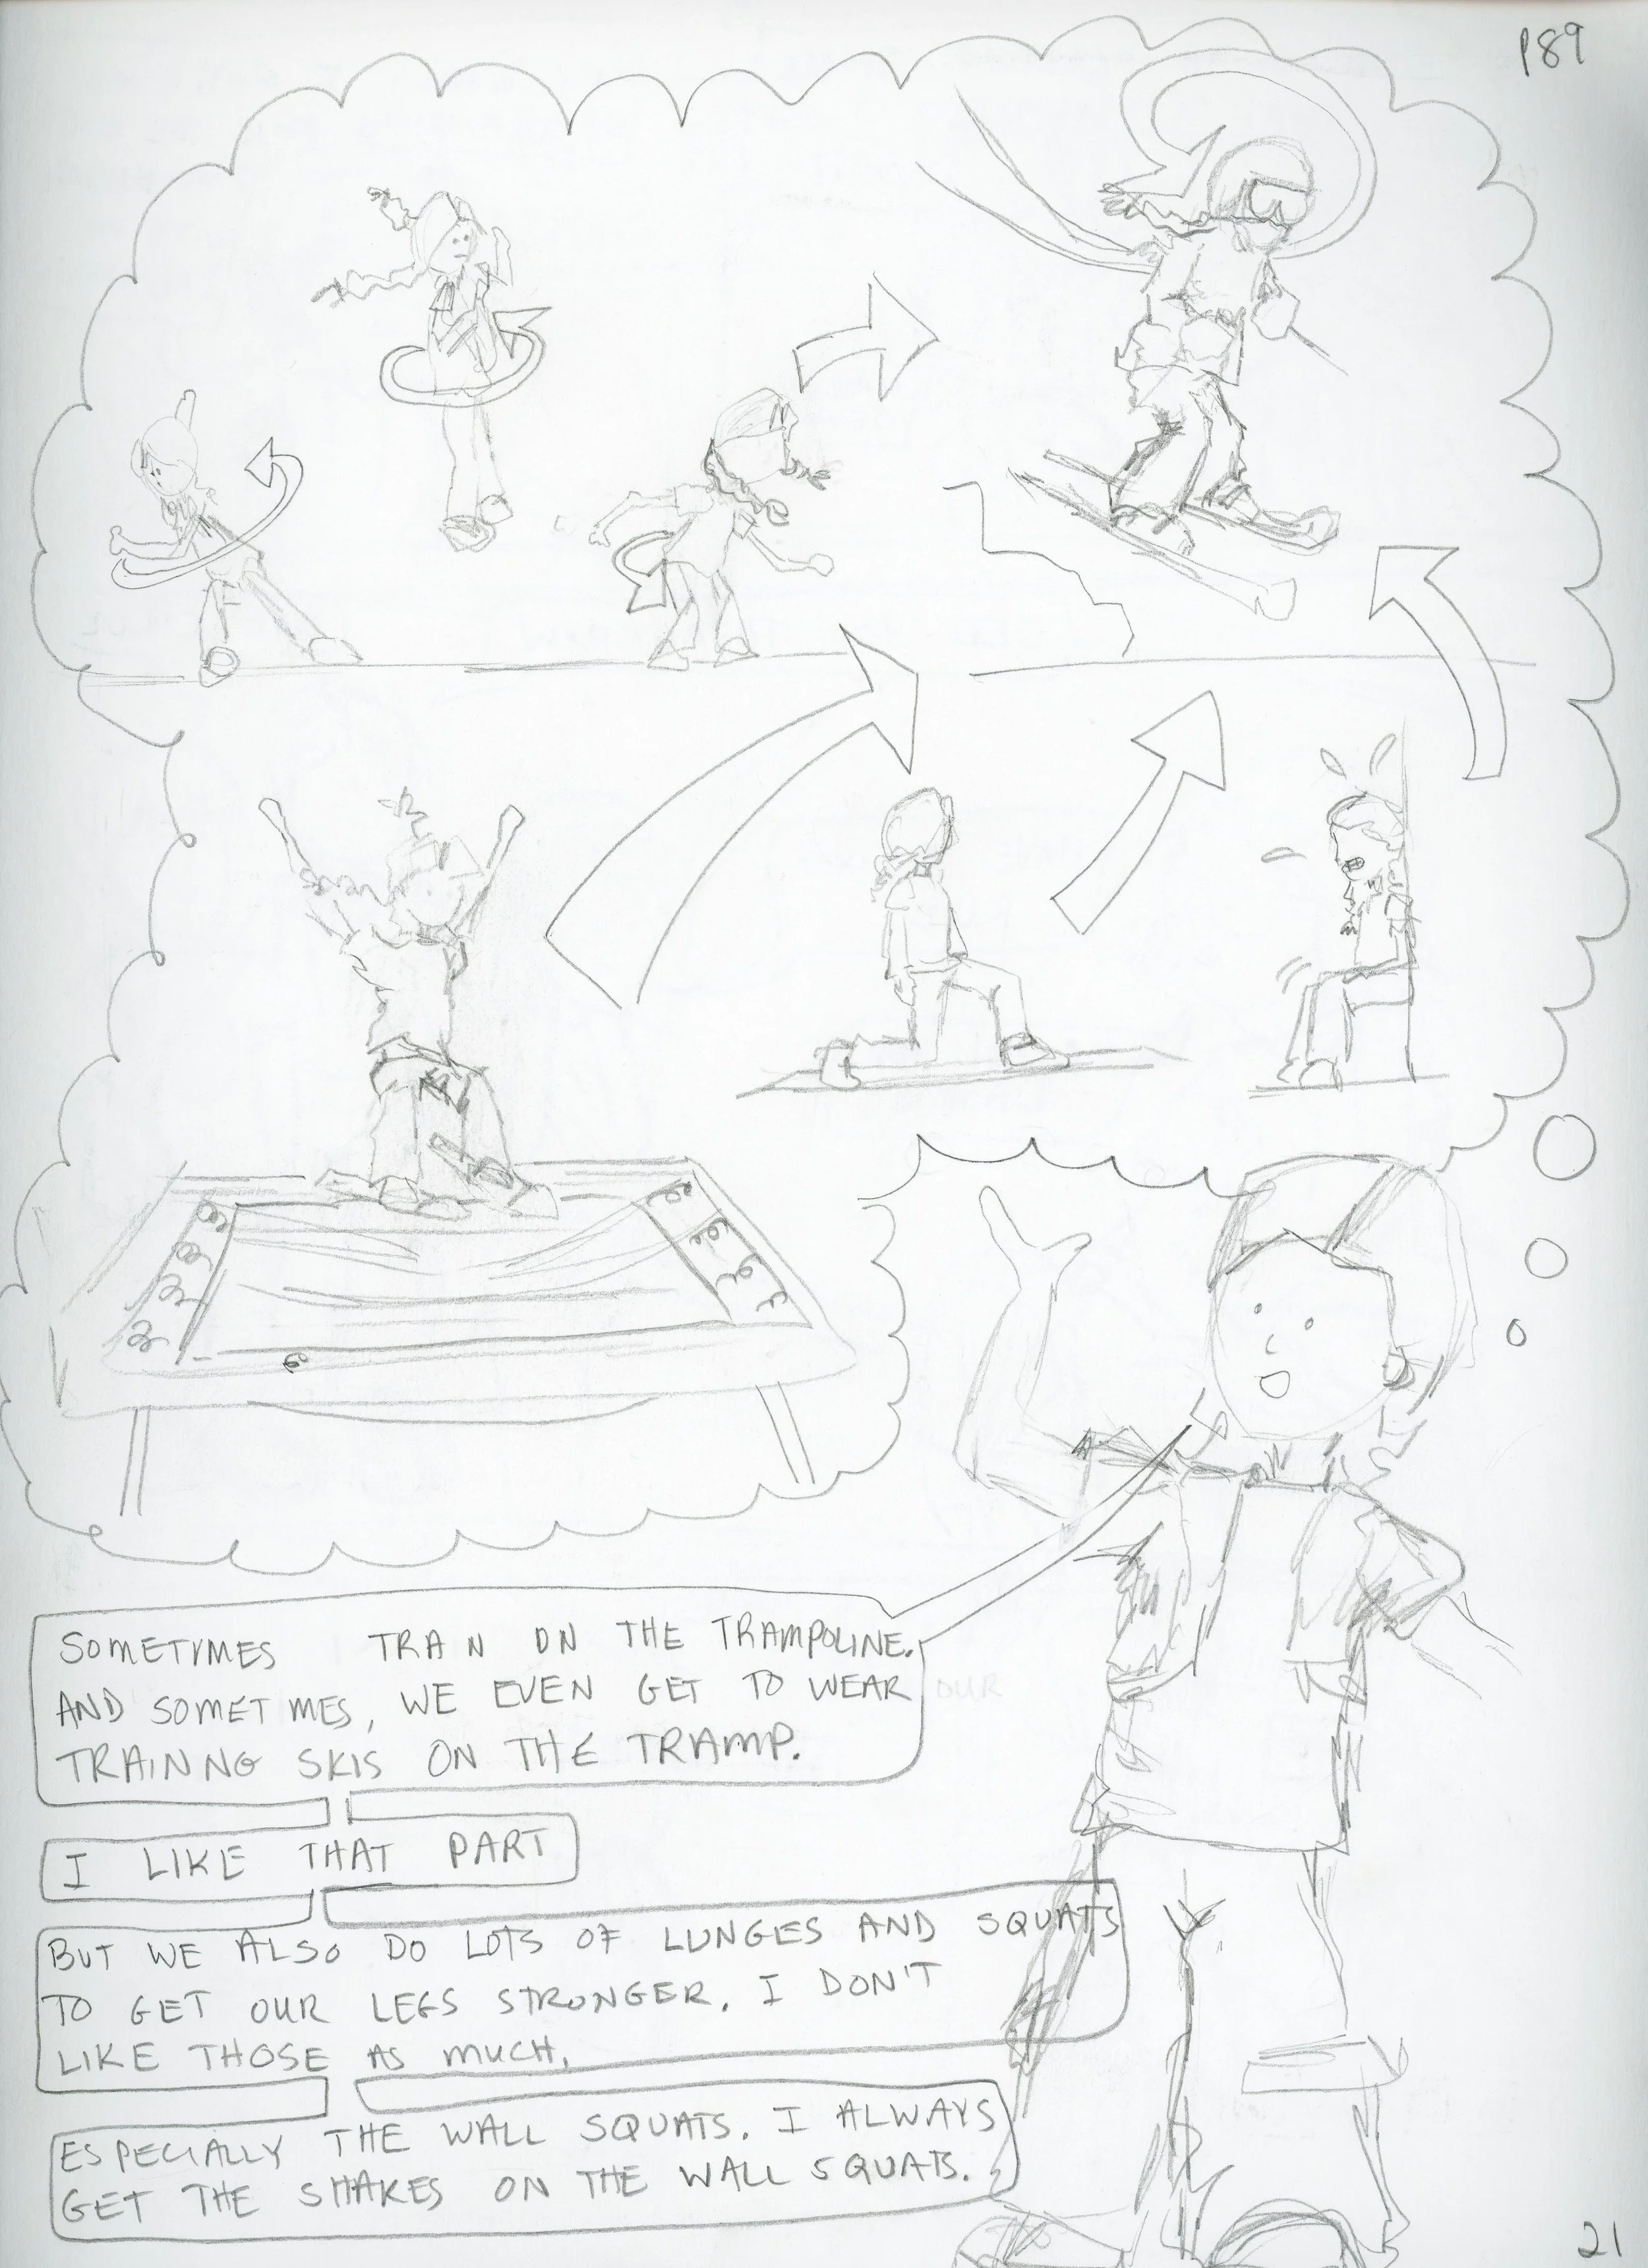 P89
SOMETIMES TRAIN ON THE TRAMPOLINE.
AND SOMETIMES, WE EVEN GET TO WEAR OUR
TRAINNG SKIS ON THE TRAMP.
I LIKE THAT PART
BUT WE ALSO DO LOTS OF LUNGES AND SQUATS
TO GET OUR LEGS STRONGER. I DON'T
LIKE THOSE AS MUCH.
ESPECIALLY THE WALL SQUATS. I ALWAYS
GET THE SHAKES ON THE WALL SQUATS.
21